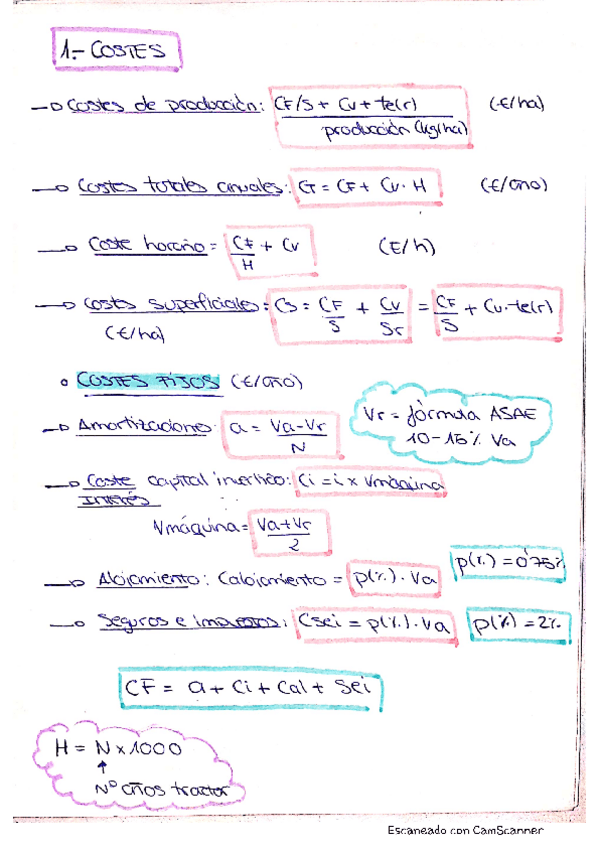 1.- COSTES
→ Costes de producción: CF/S + Cv + te(r) / producción (kg/ha) (€/ha)
→ Costes totales anuales: CT = CF + Cv · H (€/año)
→ Coste horario = CF/H + Cv (€/h)
→ Costes superficiales: Cs = CF/S + Cv/Sr = CF/S + Cv · te(r)
(€/ha)
• COSTES FIJOS (€/año)
→ Amortizaciones: a = Va-Vr/N
Vr = fórmula ASAE
10-15% Va
→ Coste capital invertido: Ci = i x Vmáquina
INTERÉS
Vmáquina = Va+Vr/2
→ Alojamiento: Calojamiento = p(%) · Va p(%) = 0'75%
→ Seguros e impuestos: Csei = p(%) · Va p(%) = 2%
CF = a + Ci + Cal + Sei
H = N x 1000
↑
Nº años tractor
Escaneado con CamScanner